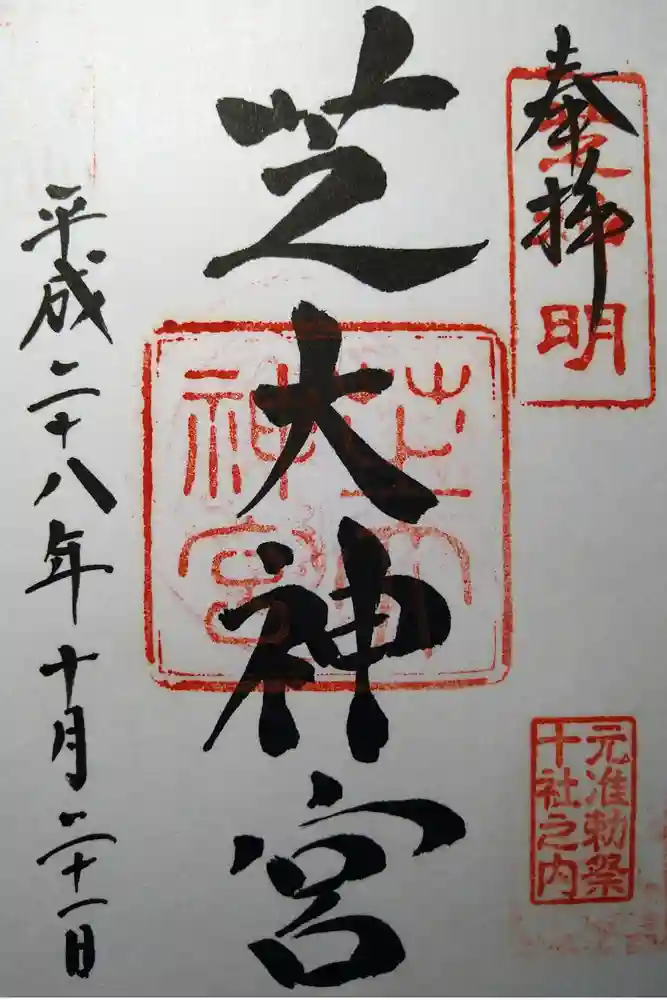 奉拝
芝大神宮
平成二十八年十月二十一日
芝大
神宮
元准勅祭
十社之内
明